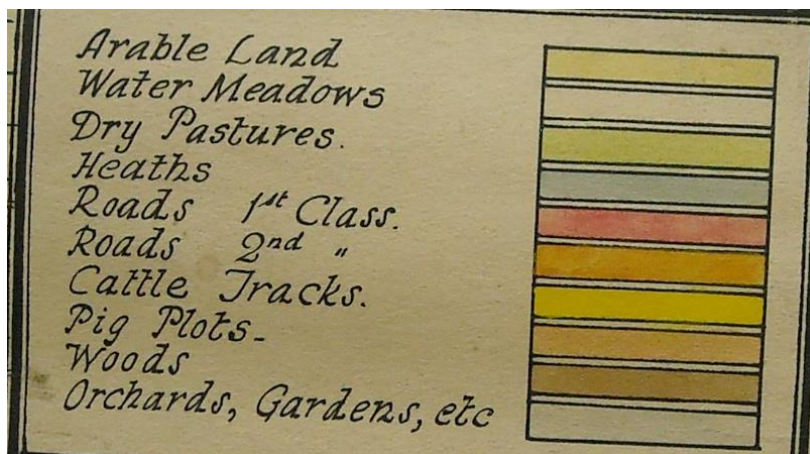 Arable Land
Water Meadows
Dry Pastures.
Heaths
Roads 1st Class.
Roads 2nd "
Cattle Tracks.
Pig Plots-
Woods
Orchards, Gardens, etc